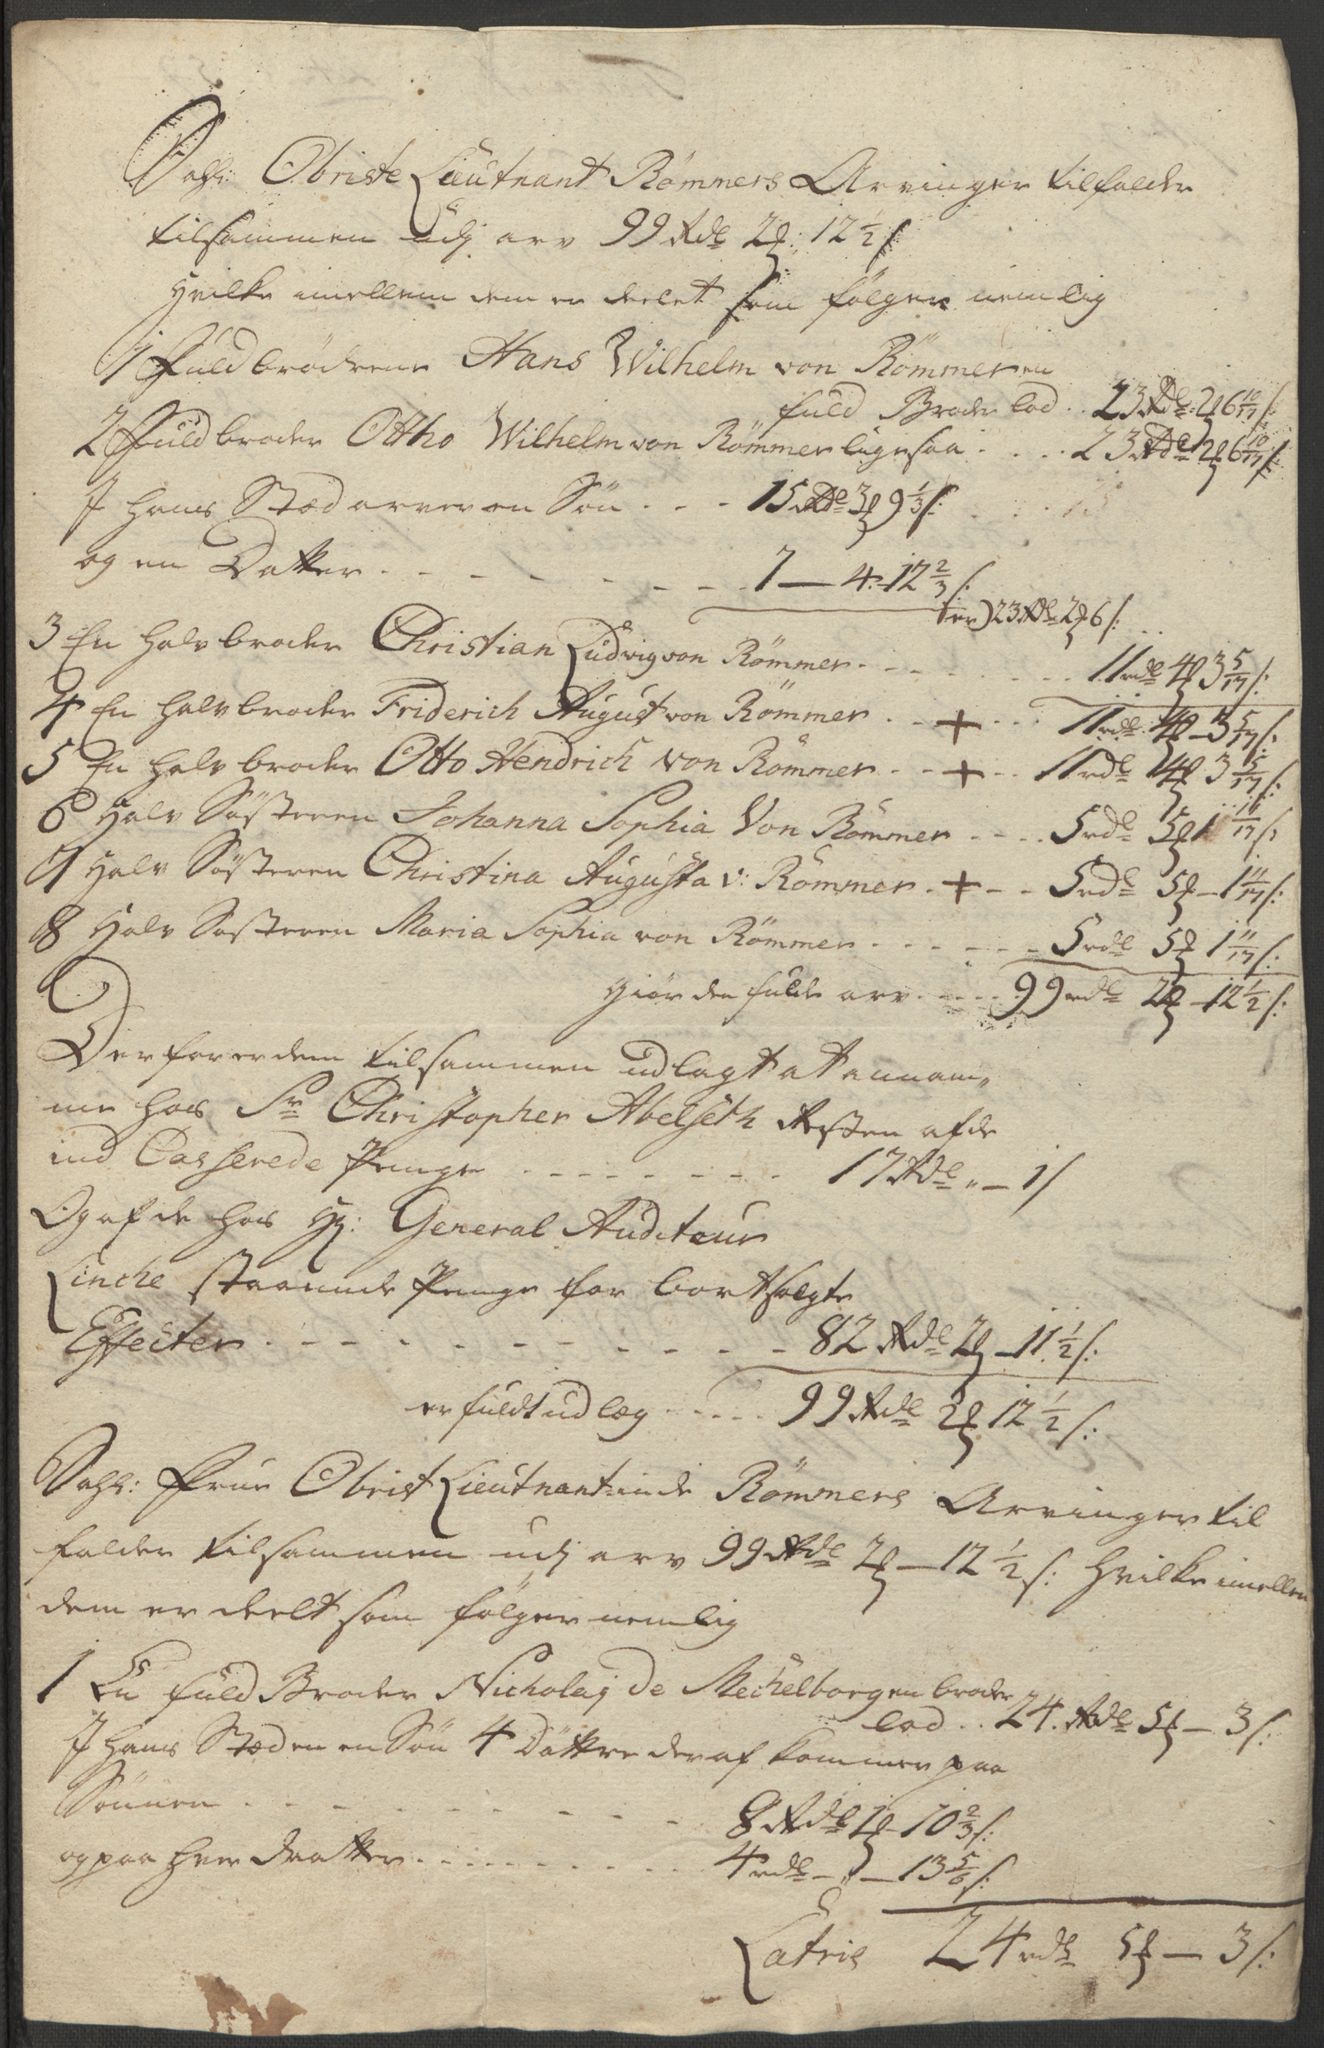 Sahl: Obriste Lieutnant Römmers Arvinger tilfalder
tilsammen udj arv 99 Rdl 2 ꝑ: 12 1/2 s:
hvilke imellem dem er deelet som følger nemlig
1 Fuldbrodrene Hans Wilhelm von Römmer en
fuld Broder lod .. 23 Rdl: 2 ꝑ 6 10/17 s:
2 Fuldbroder Otto Wilhelm von Römmer ligesaa .... 23 Rdl 2 ꝑ 6 10/17 s:
J hans Stæd arver en Sön ... 15 Rdl 3 ꝑ 9 1/3 s:
og en Datter ........ 7 — 4. 12 2/3 s:
er) 23 Rdl 2 ꝑ 6 s:
3 En halv broder Christian Ludvig von Römmer ....... 11 rdl 4 ꝑ 3 5/17 s:
4 En halvbroder Friderich August von Römmer .. + ... 11 rdl 4 ꝑ 3 5/17 s:
5 En halv broder Otto Hendrich von Römmer .. + .. 11 rdl 4 ꝑ 3 5/17 s:
6 Halv Søsteren Johanna Sophia Von Römmer .... 5 rdl 5 ꝑ 1 11/17 s:
7 Halv Søsteren Christina Augusta v: Römmer . + .. 5 rdl 5 ꝑ — 1 11/17 s:
8 Halv Søsteren Maria Sophia von Römmer ...... 5 rdl 5 ꝑ 1 11/17 s:
giør den fulde arv ..... 99 rdl 2 ꝑ — 12 1/2 s:
Derfor er dem tilsammen udlagt at annam-
me hos Sr Christopher Abelseth Resten af de
ind Casserede Penge ........ 17 Rdl „ — 1 s
Og af de hos Hr: General Auditeur
Linche staaende Penge for bortsolgte
Effecter ........... 82 Rdl 2 ꝑ — 11 1/2 s:
er fuldt udlæg ..... 99 Rdl 2 ꝑ 12 1/2 s:
Sahl: Frue Obrist Lieutnantinde Römmers Arvinger til
falder tilsammen udj arv 99 Rdl 2 ꝑ — 12 1/2 s: hvilke imellem
dem er deelt som følger nemlig
1 En fuld Broder Nicholaj de Mechelborg en broder
lod .. 24. Rdl 5 ꝑ — 3 s:
J hans Stæd en en Sön 4 Döttre deraf kommer paa
Sönnen .......... 8 Rdl 1 ꝑ — 10 2/3 s:
og paa hver Datter .......... 4 rdl — „ — 13 5/6 s:
Latris 24 rdl 5 ꝑ — 3 s: